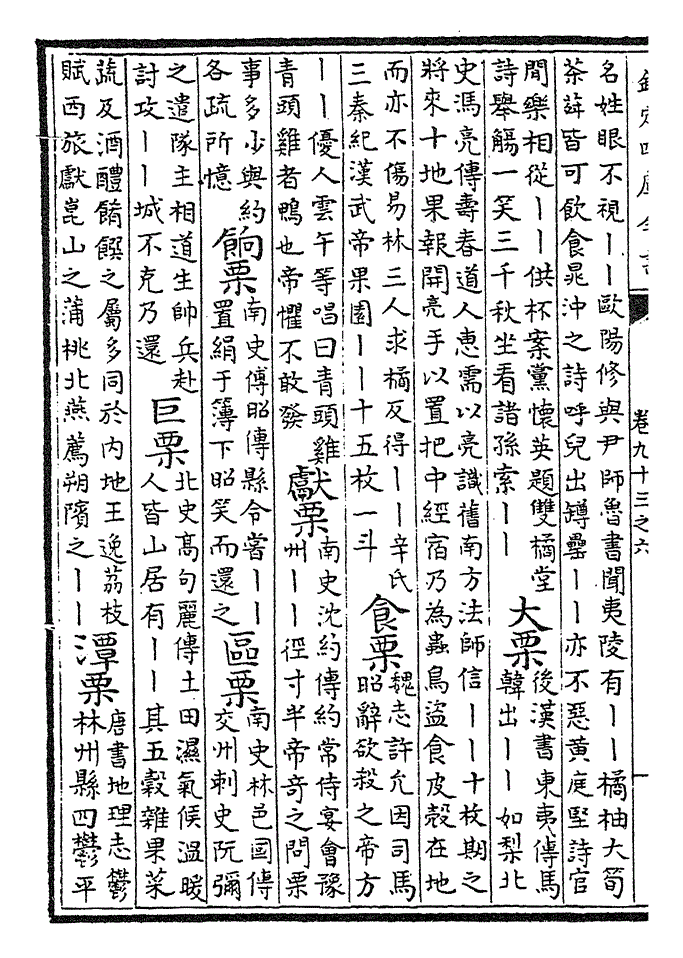 欽定四庫全書
卷九十三之六
名姓眼不視——歐陽修與尹師魯書聞夷陵有——橘柚大筍
茶荈皆可飲食晁沖之詩呼兒出罇罍——亦不惡黄庭堅詩官
閒樂相從——供杯案黨懷英題雙橘堂
詩舉觴一笑三千秋坐看諸孫索——
大栗
後漢書東夷傳馬
韓出——如梨北
史馮亮傳壽春道人惠需以亮識舊南方法師信——十枚期之
將來十地果報開亮手以置把中經宿乃為蟲鳥盗食皮殼在地
而亦不傷易林三人求橘反得——辛氏
三秦紀漢武帝果園——十五枚一斗
食栗
魏志許允因司馬
昭辭欲殺之帝方
——優人雲午等唱曰青頭雞
青頭雞者鴨也帝懼不敢發
獻栗
南史沈約傳約常侍宴會豫
州——徑寸半帝奇之問栗
事多少與約
各疏所憶
餉栗
南史傅昭傳縣令嘗——
置絹于簿下昭笑而還之
區栗
南史林邑國傳
交州刺史阮彌
之遣隊主相道生帥兵赴
討攻——城不克乃還
巨栗
北史髙句麗傳土田濕氣候温暖
人皆山居有——其五穀雜果菜
蔬及酒醴餚饌之屬多同於内地王逸荔枝
賦西旅獻崑山之蒲桃北燕薦朔濱之——
潭栗
唐書地理志鬱
林州縣四鬱平